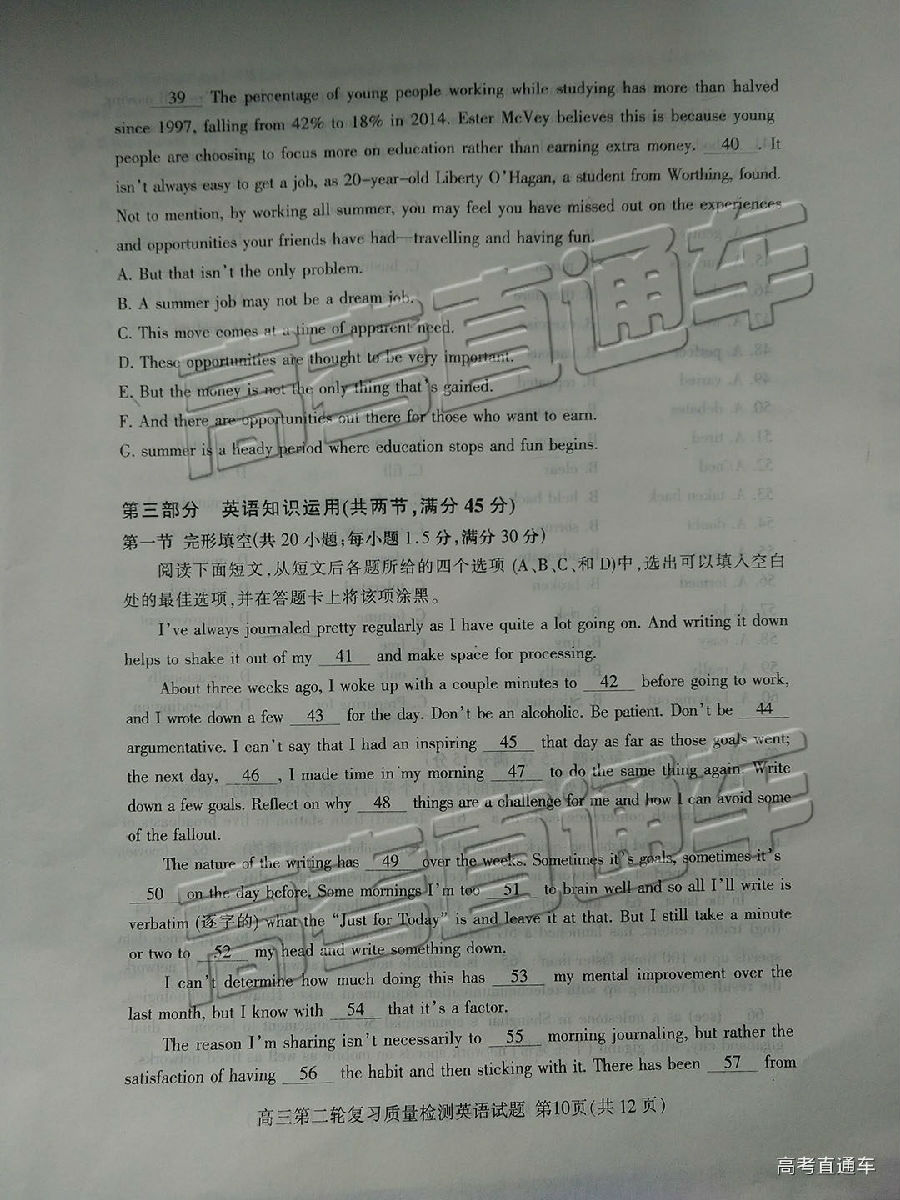 39 The percentage of young people working while studying has more than halved
since 1997, falling from 42% to 18% in 2014. Ester McVey believes this is because young
people are choosing to focus more on education rather than earning extra money. 40 . It
isn't always easy to get a job, as 20-year-old Liberty O'Hagan, a student from Worthing, found.
Not to mention, by working all summer, you may feel you have missed out on the experiences
and opportunities your friends have had—travelling and having fun.
A. But that isn't the only problem.
B. A summer job may not be a dream job.
C. This move comes at a time of apparent need.
D. These opportunities are thought to be very important.
E. But the money is not the only thing that's gained.
F. And there are opportunities out there for those who want to earn.
G. summer is a heady period where education stops and fun begins.
第三部分 英语知识运用(共两节,满分45分)
第一节 完形填空(共20小题;每小题1.5分,满分30分)
阅读下面短文,从短文后各题所给的四个选项 (A、B、C、和 D)中,选出可以填入空白
处的最佳选项,并在答题卡上将该项涂黑。
I've always journaled pretty regularly as I have quite a lot going on. And writing it down
helps to shake it out of my 41 and make space for processing.
About three weeks ago, I woke up with a couple minutes to 42 before going to work,
and I wrote down a few 43 for the day. Don't be an alcoholic. Be patient. Don't be 44
argumentative. I can't say that I had an inspiring 45 that day as far as those goals went;
the next day, 46 , I made time in my morning 47 to do the same thing again. Write
down a few goals. Reflect on why 48 things are a challenge for me and how I can avoid some
of the fallout.
The nature of the writing has 49 over the weeks. Sometimes it's goals, sometimes it's
50 on the day before. Some mornings I'm too 51 to brain well and so all I'll write is
verbatim (逐字的) what the "Just for Today" is and leave it at that. But I still take a minute
or two to 52 my head and write something down.
I can't determine how much doing this has 53 my mental improvement over the
last month, but I know with 54 that it's a factor.
The reason I'm sharing isn't necessarily to 55 morning journaling, but rather the
satisfaction of having 56 the habit and then sticking with it. There has been 57 from
高三第二轮复习质量检测英语试题 第10页(共12页)
高考直通车
高考直通车
高考直通车